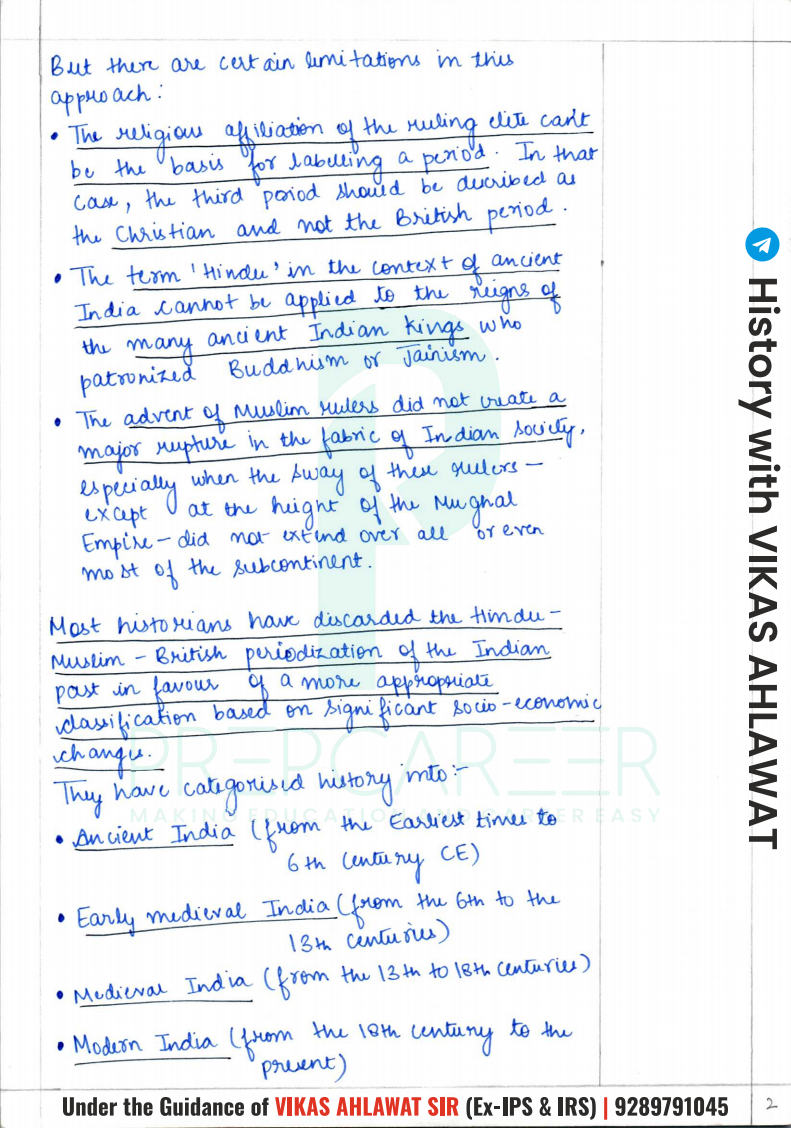 But there are certain limitations in this
approach:
• The religious affiliation of the ruling elite can't
be the basis for labelling a period. In that
case, the third period should be described as
the Christian and not the British period.
• The term 'Hindu' in the context of ancient
India cannot be applied to the reigns of
the many ancient Indian kings who
patronized Buddhism or Jainism.
• The advent of Muslim rulers did not create a
major rupture in the fabric of Indian society,
especially when the sway of these rulers –
except at the height of the Mughal
Empire – did not extend over all or even
most of the subcontinent.
Most historians have discarded the Hindu –
Muslim – British periodization of the Indian
past in favour of a more appropriate
classification based on significant socio-economic
changes.
They have categorised history into:-
• Ancient India (from the Earliest times to
6th century CE)
• Early medieval India (from the 6th to the
13th centuries)
• Medieval India (from the 13th to 18th centuries)
• Modern India (from the 18th century to the
present)
PREPCAREER
MAKING EDUCATION AND CAREER EASY
History with VIKAS AHLAWAT
Under the Guidance of VIKAS AHLAWAT SIR (Ex-IPS & IRS) | 9289791045
2